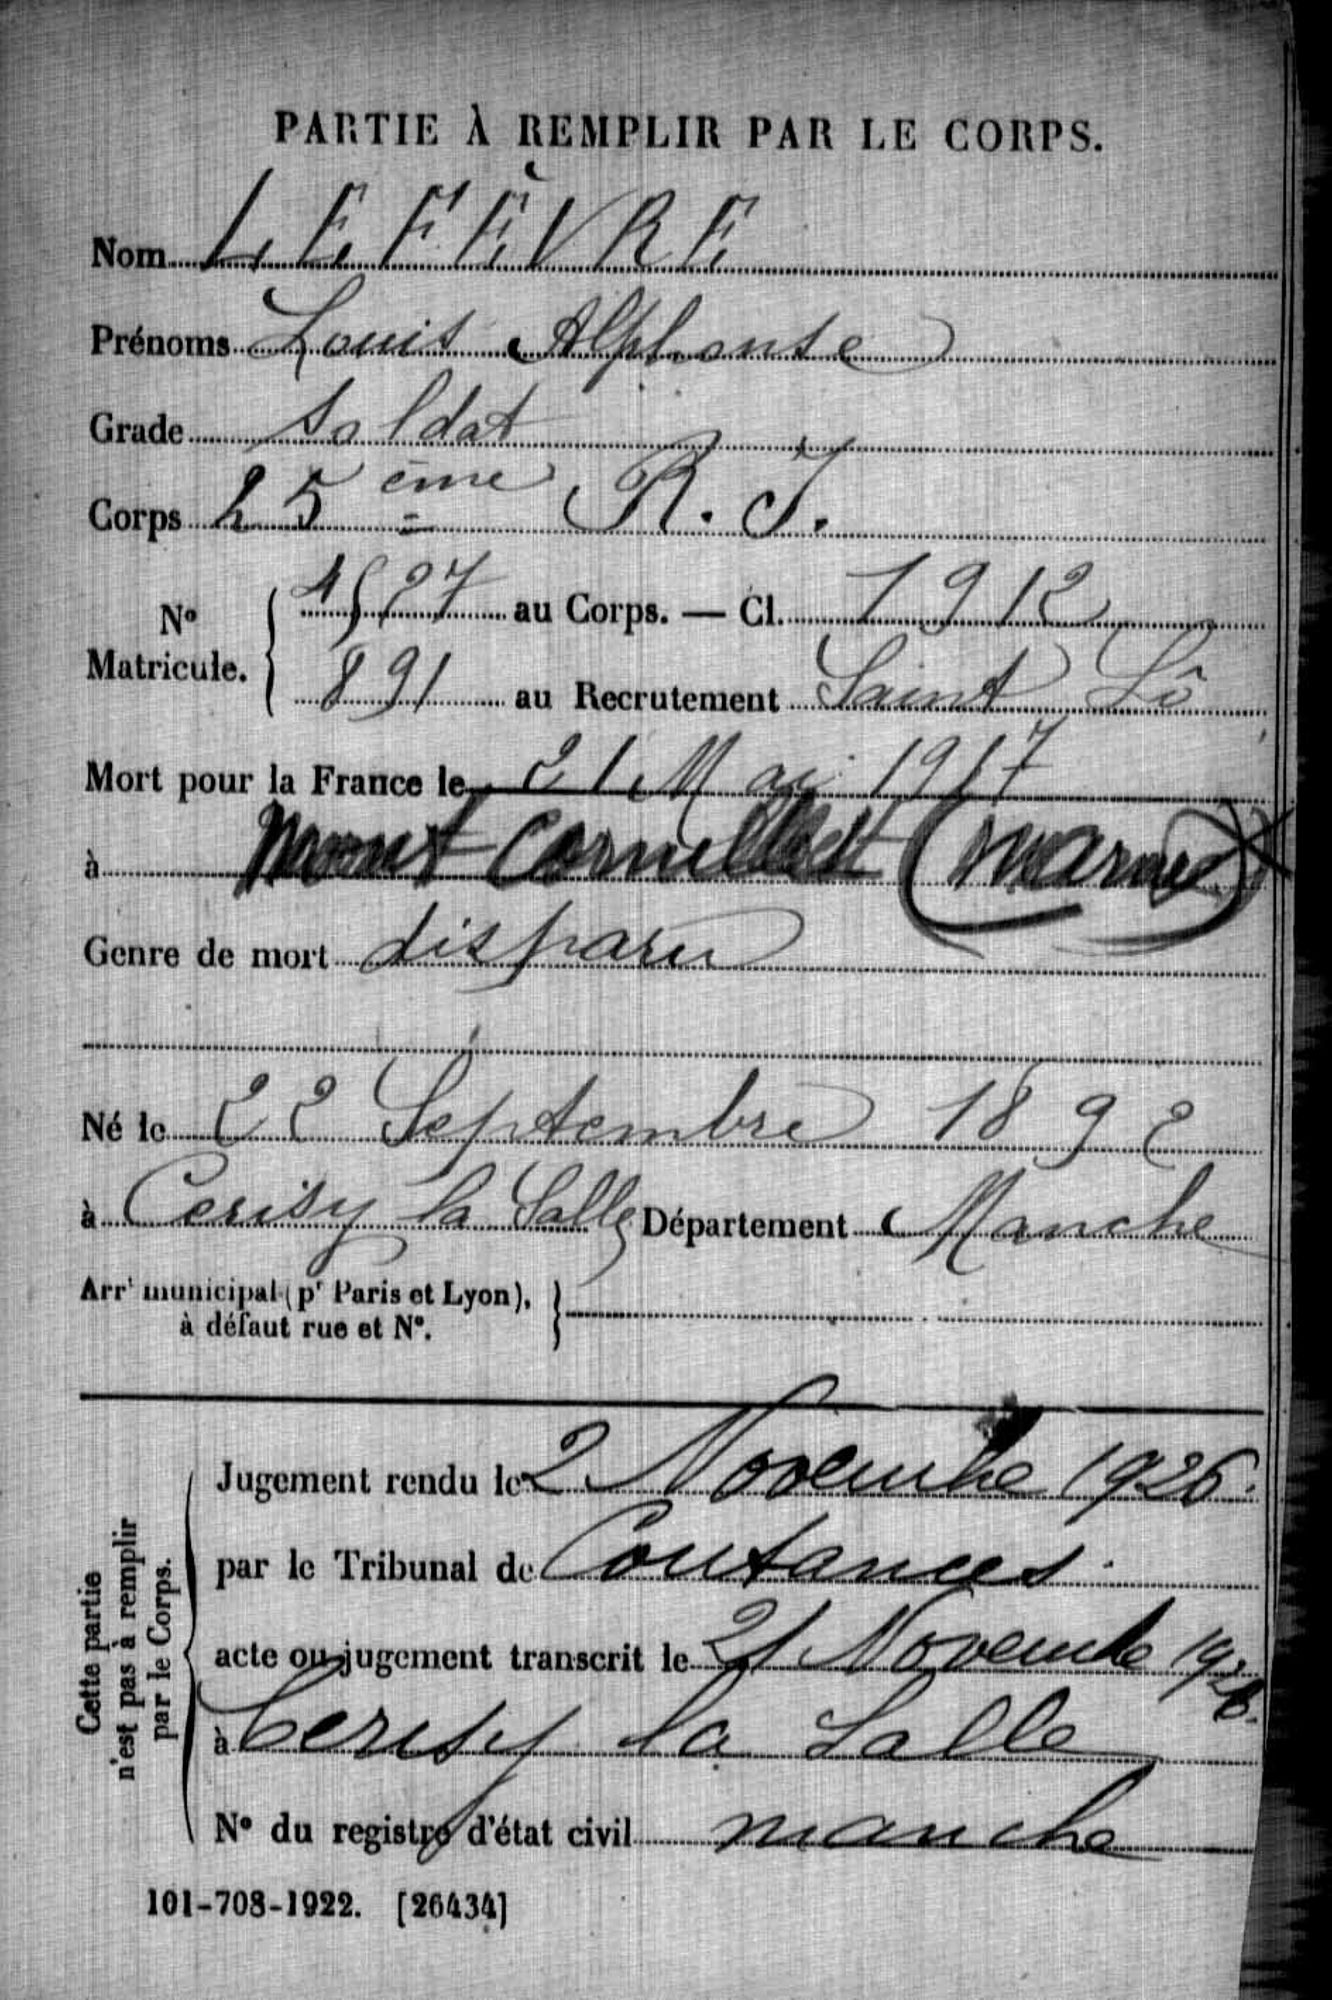 PARTIE À REMPLIR PAR LE CORPS.
Nom LEFÈVRE
Prénoms Louis Alphonse
Grade soldat
Corps 25 ème R. I.
N° Matricule. 4527 au Corps. — Cl. 1912
891 au Recrutement Saint Lô
Mort pour la France le 21 Mai 1917
à Mont Cornillet (Marne)
Genre de mort disparu
Né le 22 Septembre 1892
à Cerisy la Salle Département Manche
Arrt municipal (pr Paris et Lyon),
à défaut rue et N°.
Cette partie
n'est pas à remplir
par le Corps.
Jugement rendu le 2 Novembre 1926.
par le Tribunal de Coutances.
acte ou jugement transcrit le 21 Novembre 1926.
à Cerisy la Salle
N° du registre d'état civil manche
101-708-1922. [26434]